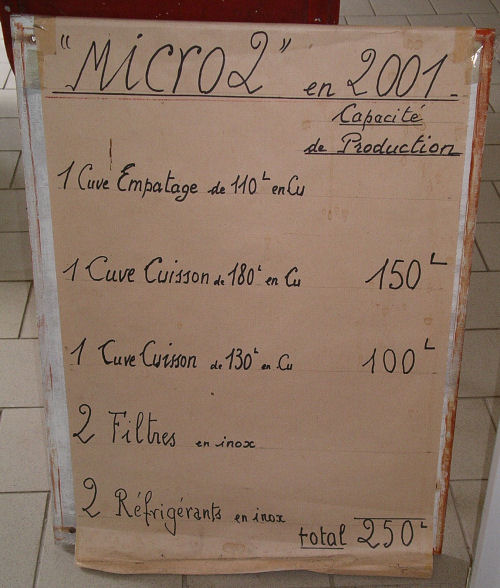 "Micro2" en 2001.
Capacité
de Production
1 Cuve Empatage de 110L en Cu
1 Cuve Cuisson de 180L en Cu 150L
1 Cuve Cuisson de 130L en Cu 100L
2 Filtres en inox
2 Réfrigérants en inox
total 250L